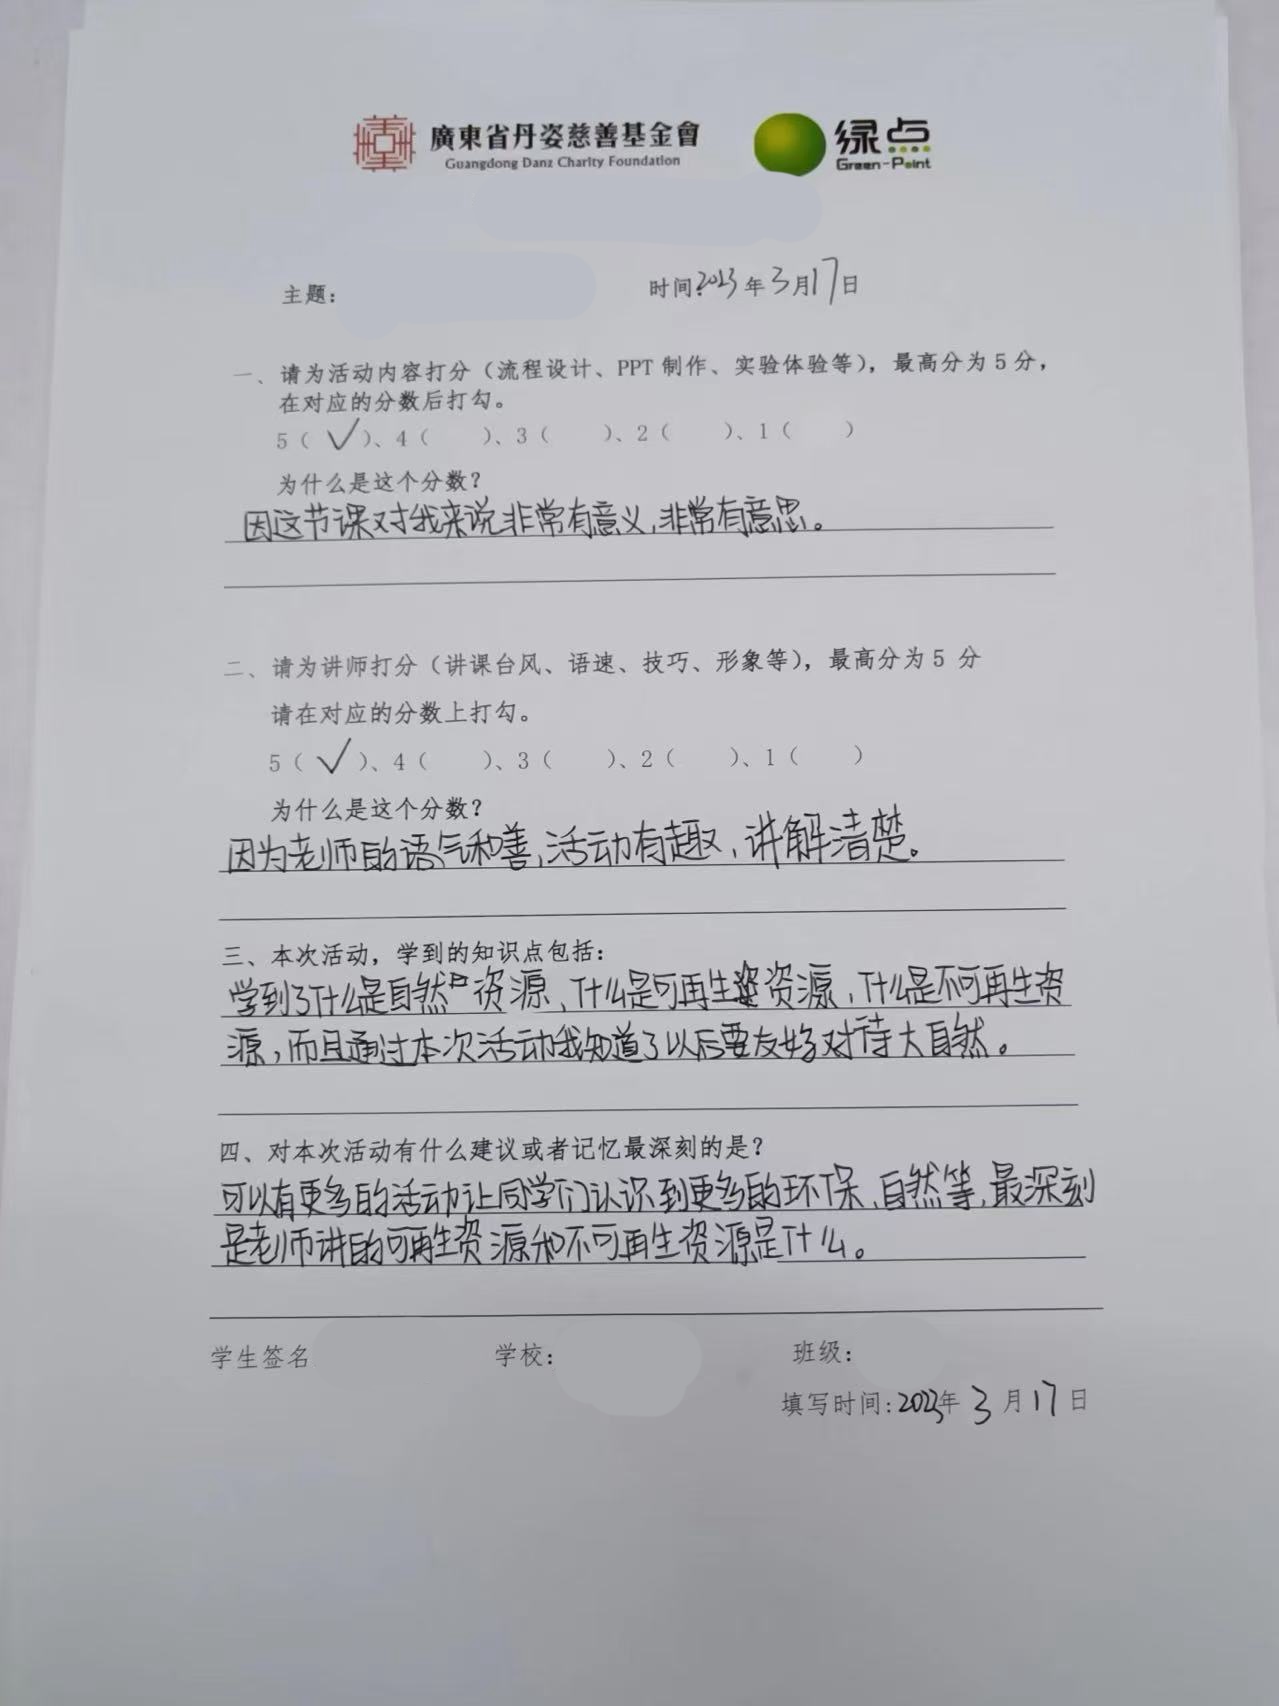 廣東省丹姿慈善基金會 绿点
Guangdong Danz Charity Foundation Green-Point
主题： 时间:2023年3月17日
一、请为活动内容打分（流程设计、PPT 制作、实验体验等），最高分为 5 分，
在对应的分数后打勾。
5（ ✓ ）、4（ ）、3（ ）、2（ ）、1（ ）
为什么是这个分数？
因这节课对我来说非常有意义,非常有意思。
二、请为讲师打分（讲课台风、语速、技巧、形象等），最高分为 5 分
请在对应的分数上打勾。
5（ ✓ ）、4（ ）、3（ ）、2（ ）、1（ ）
为什么是这个分数？
因为老师的语气和善,活动有趣,讲解清楚。
三、本次活动，学到的知识点包括：
学到了什么是自然资源、什么是可再生资源,什么是不可再生资
源,而且通过本次活动我知道了以后要友好对待大自然。
四、对本次活动有什么建议或者记忆最深刻的是？
可以有更多的活动让同学们认识到更多的环保、自然等,最深刻
是老师讲的可再生资源和不可再生资源是什么。
学生签名 学校： 班级：
填写时间:2023年3月17日